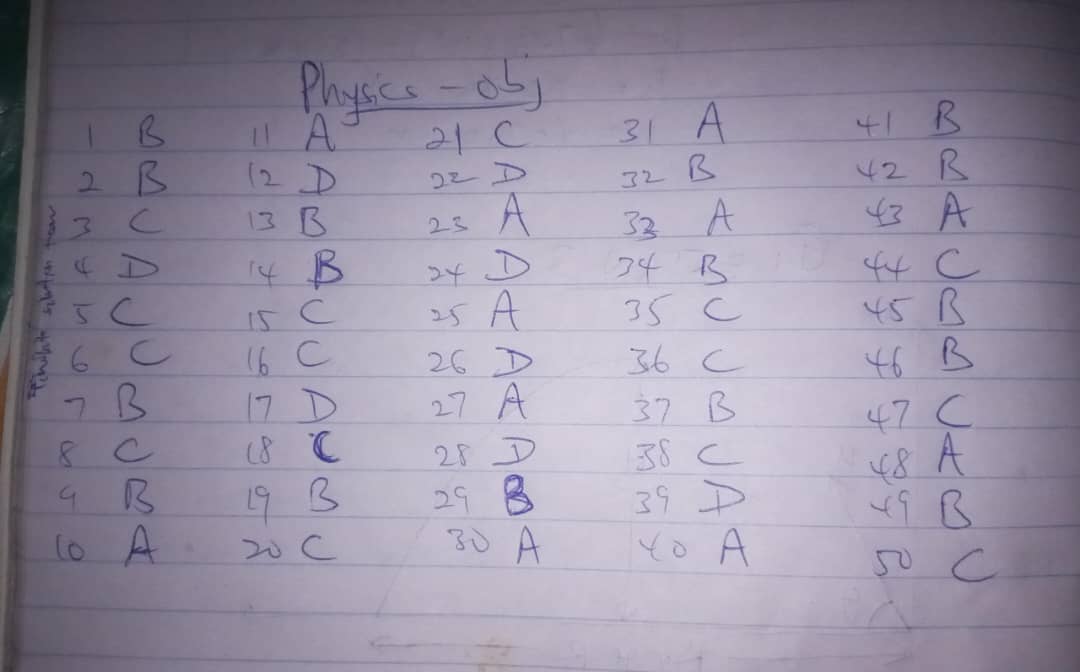 Physics - obj
1 B 11 A 21 C 31 A 41 B
2 B 12 D 22 D 32 B 42 B
3 C 13 B 23 A 33 A 43 A
4 D 14 B 24 D 34 B 44 C
5 C 15 C 25 A 35 C 45 B
6 C 16 C 26 D 36 C 46 B
7 B 17 D 27 A 37 B 47 C
8 C 18 C 28 D 38 C 48 A
9 B 19 B 29 B 39 D 49 B
10 A 20 C 30 A 40 A 50 C